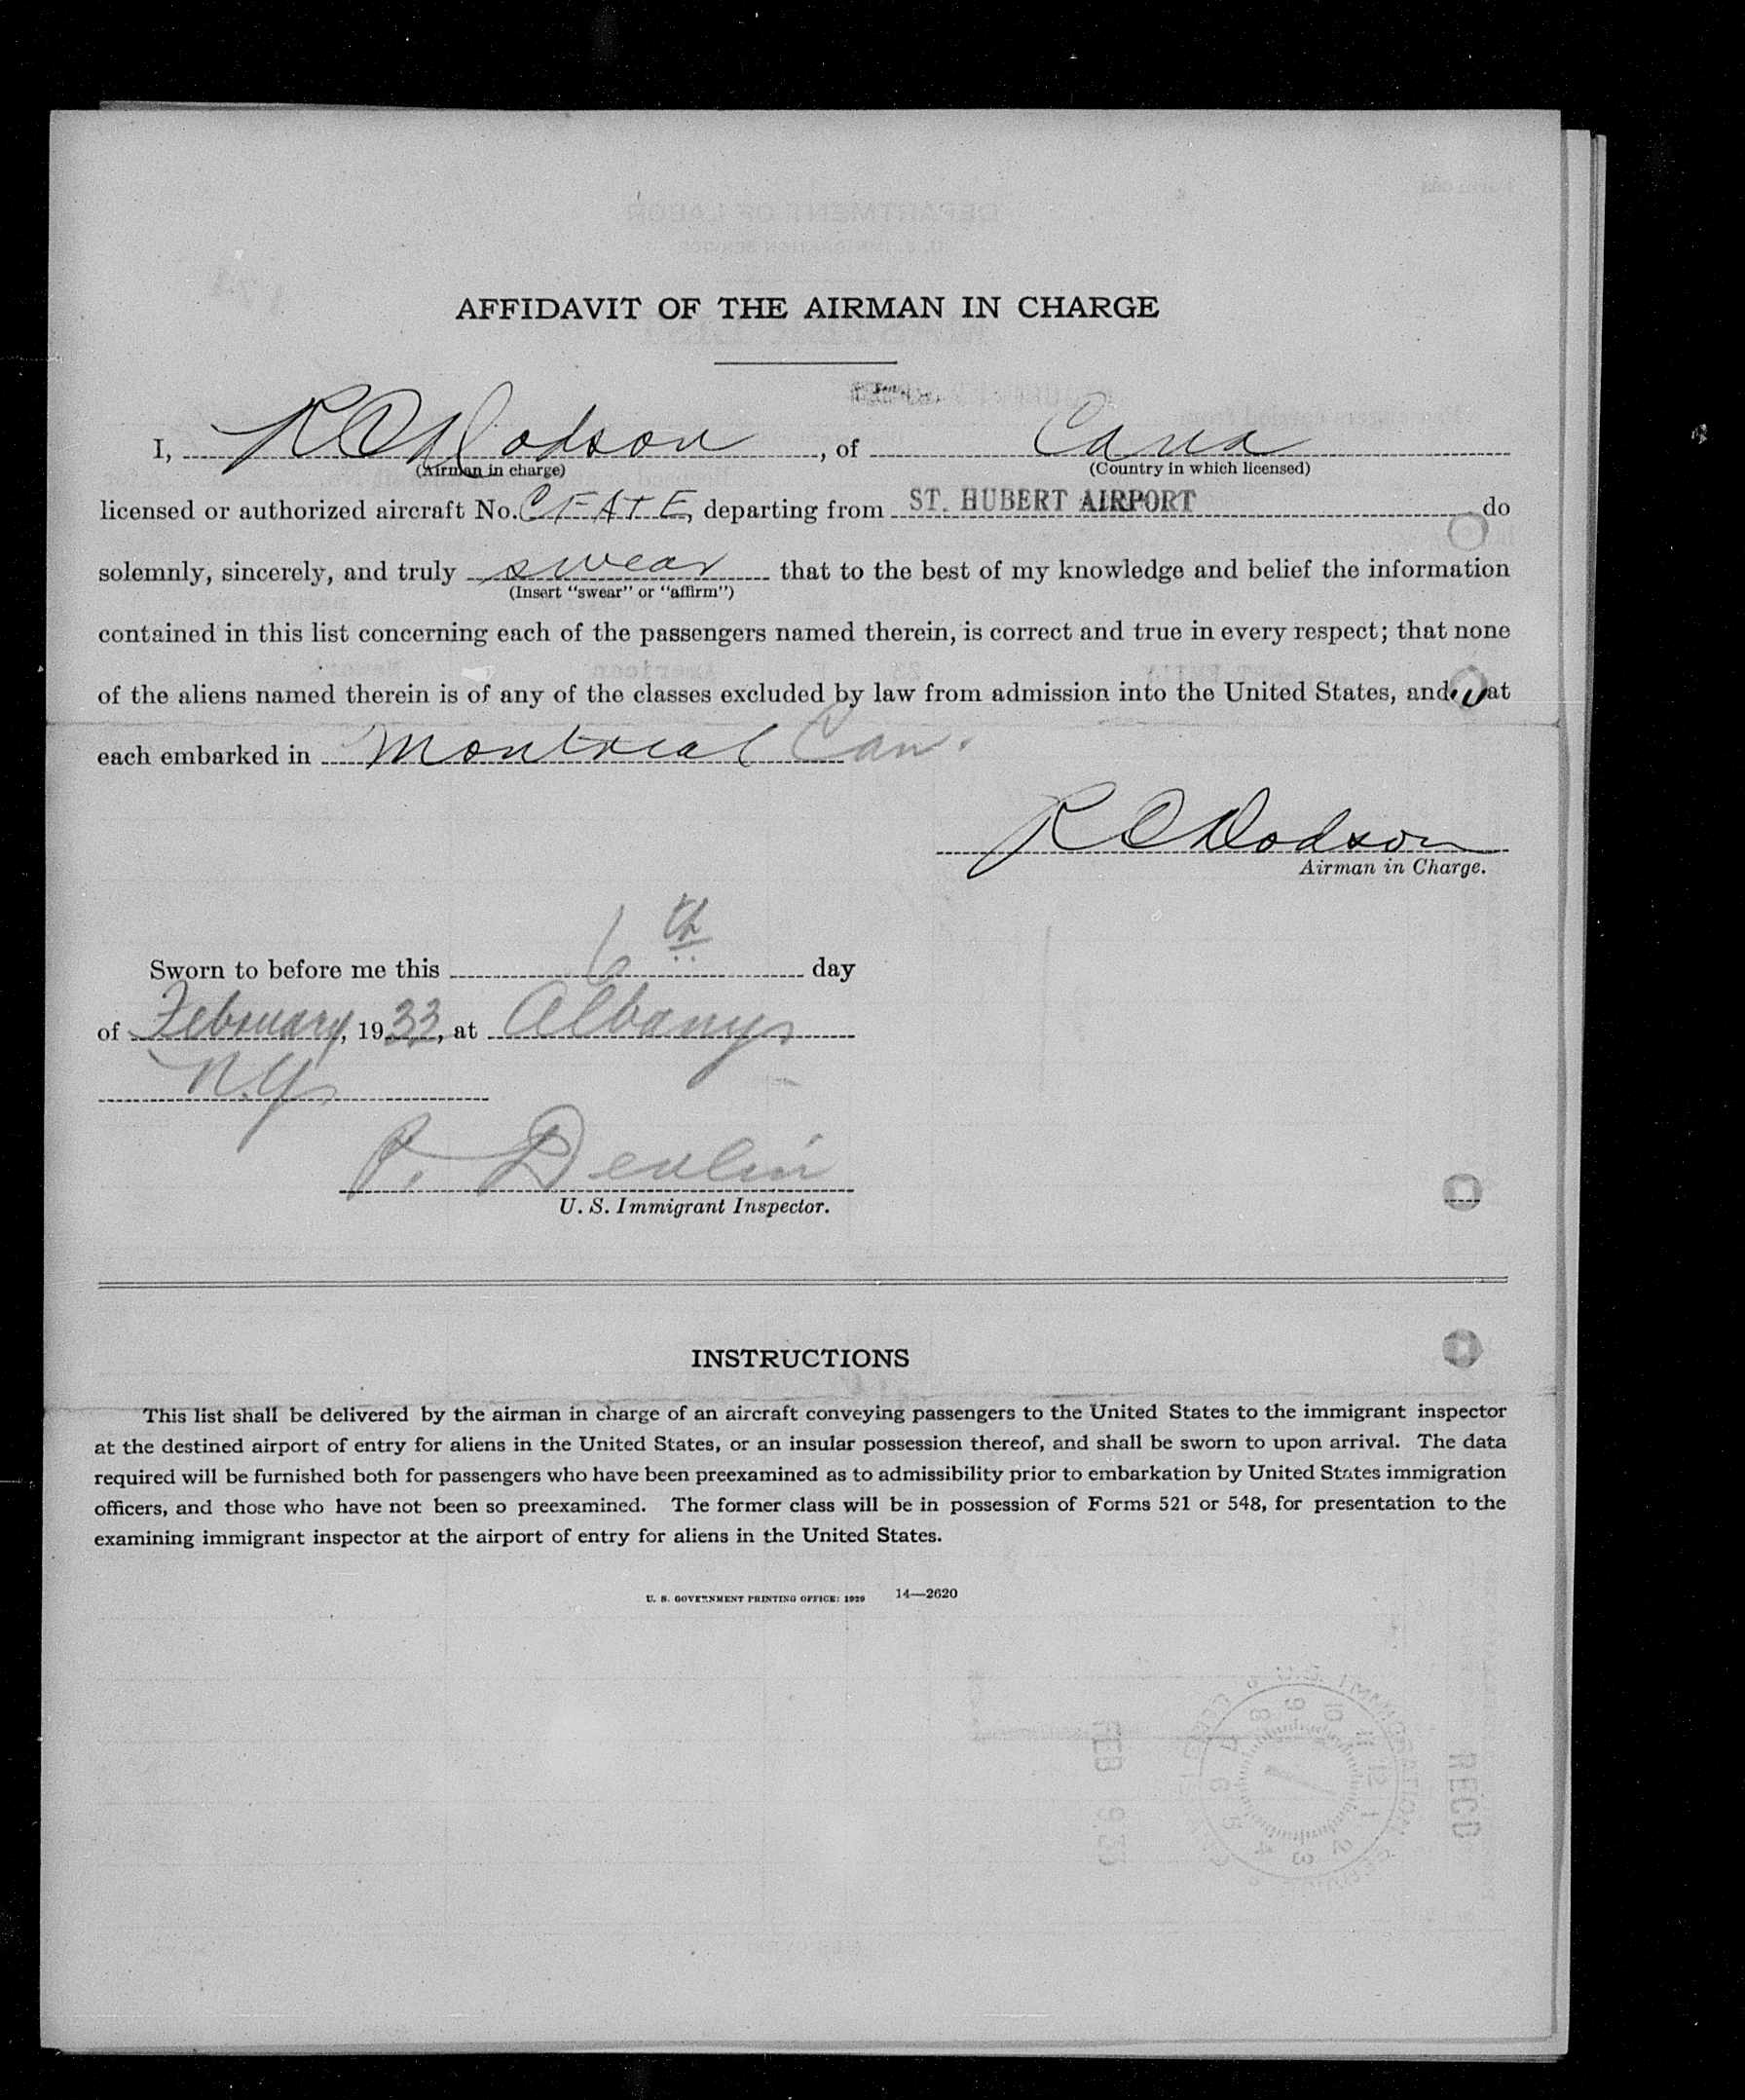 AFFIDAVIT OF THE AIRMAN IN CHARGE
I, R O Dodson, of Cana
(Airman in charge) (Country in which licensed)
licensed or authorized aircraft No. CFATE, departing from ST. HUBERT AIRPORT do
solemnly, sincerely, and truly swear that to the best of my knowledge and belief the information
(Insert "swear" or "affirm")
contained in this list concerning each of the passengers named therein, is correct and true in every respect; that none
of the aliens named therein is of any of the classes excluded by law from admission into the United States, and at
each embarked in Montreal Can.
R O Dodson
Airman in Charge.
Sworn to before me this 6th day
of February, 1933, at Albany,
N.Y.
P. Devlin
U. S. Immigrant Inspector.
INSTRUCTIONS
This list shall be delivered by the airman in charge of an aircraft conveying passengers to the United States to the immigrant inspector
at the destined airport of entry for aliens in the United States, or an insular possession thereof, and shall be sworn to upon arrival. The data
required will be furnished both for passengers who have been preexamined as to admissibility prior to embarkation by United States immigration
officers, and those who have not been so preexamined. The former class will be in possession of Forms 521 or 548, for presentation to the
examining immigrant inspector at the airport of entry for aliens in the United States.
U. S. GOVERNMENT PRINTING OFFICE: 1929 14—2620